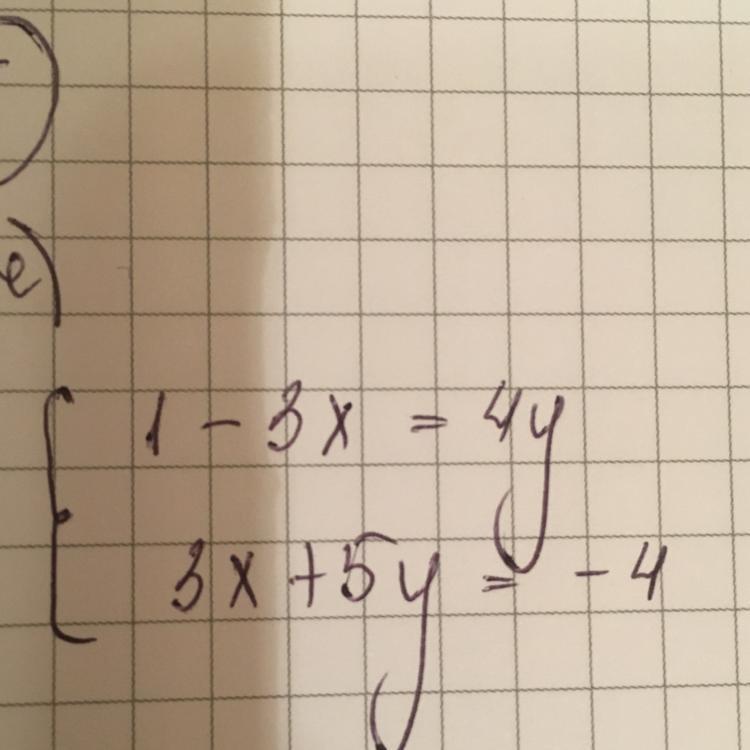 e)
1 - 3x = 4y
3x + 5y = -4